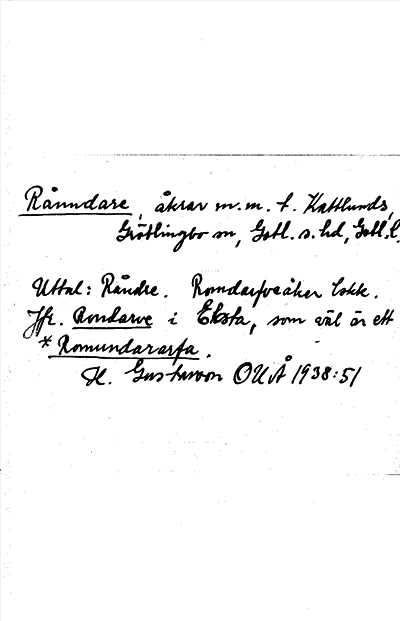 Rånndare, åkrar m.m. t. Kattlunds,
Grötlingbo sn, Gotl. s. hd, Gotl. l.
Uttal: Råndre. Romdarfveåker Lskk.
Jfr. Rondarve i Eksta, som väl är ett
*Romundararfa.
H. Gustavson OUÅ 1938:51